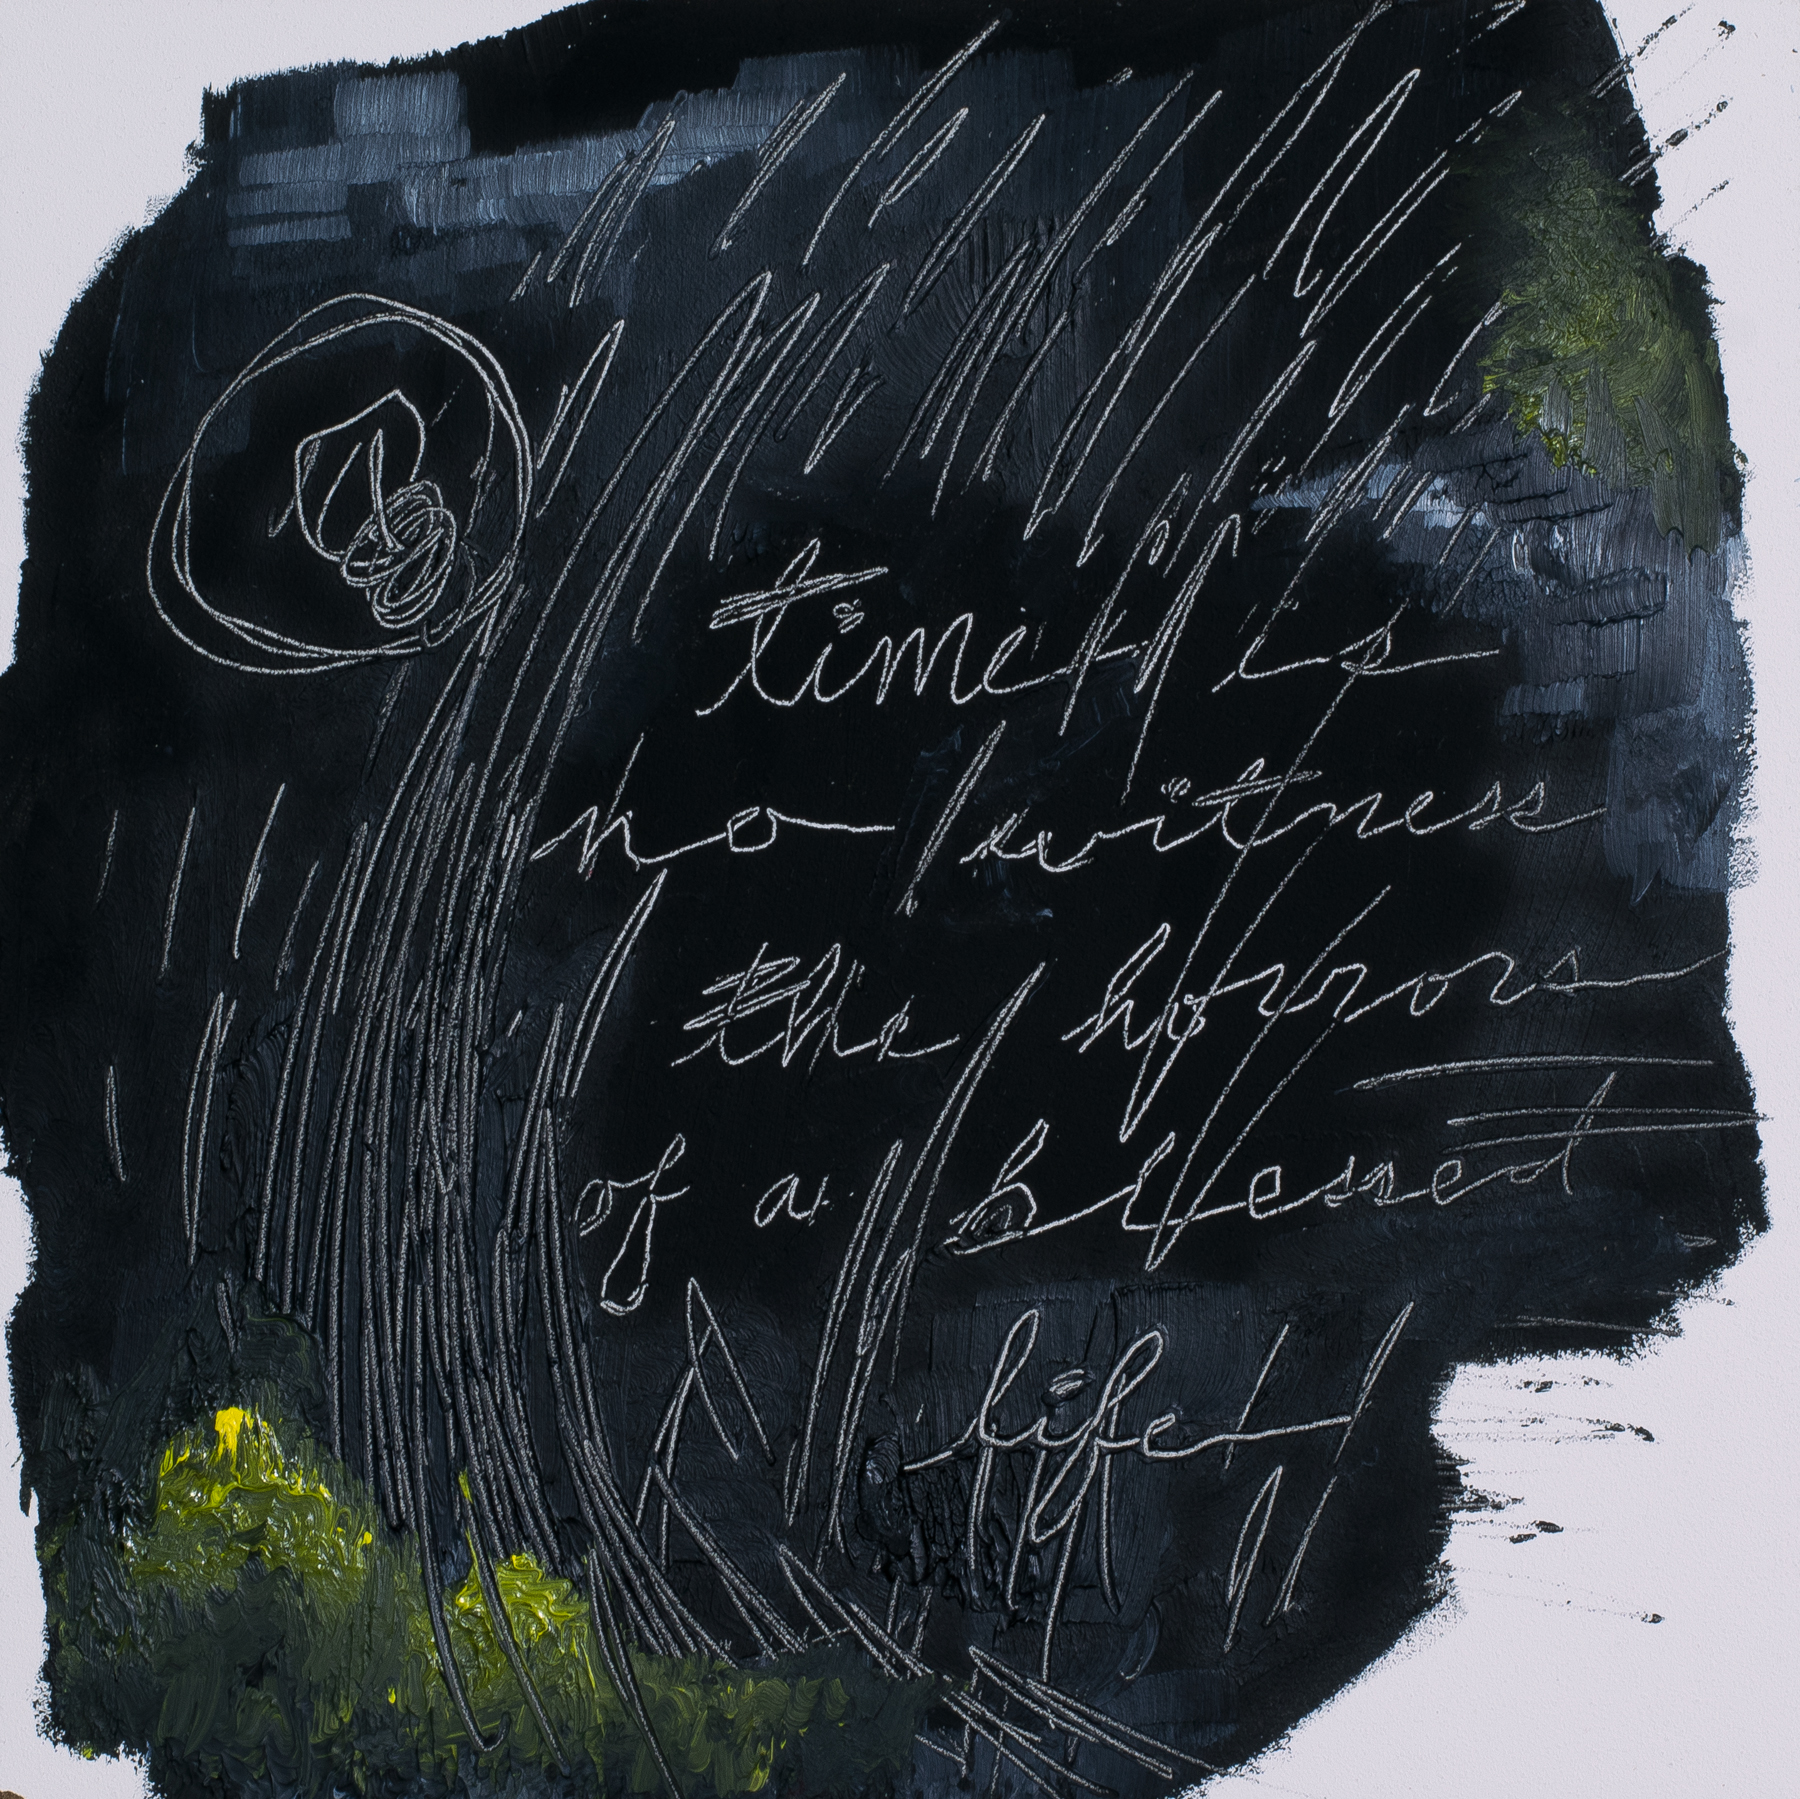 time is
no witness
the horrors
of a blessed
life